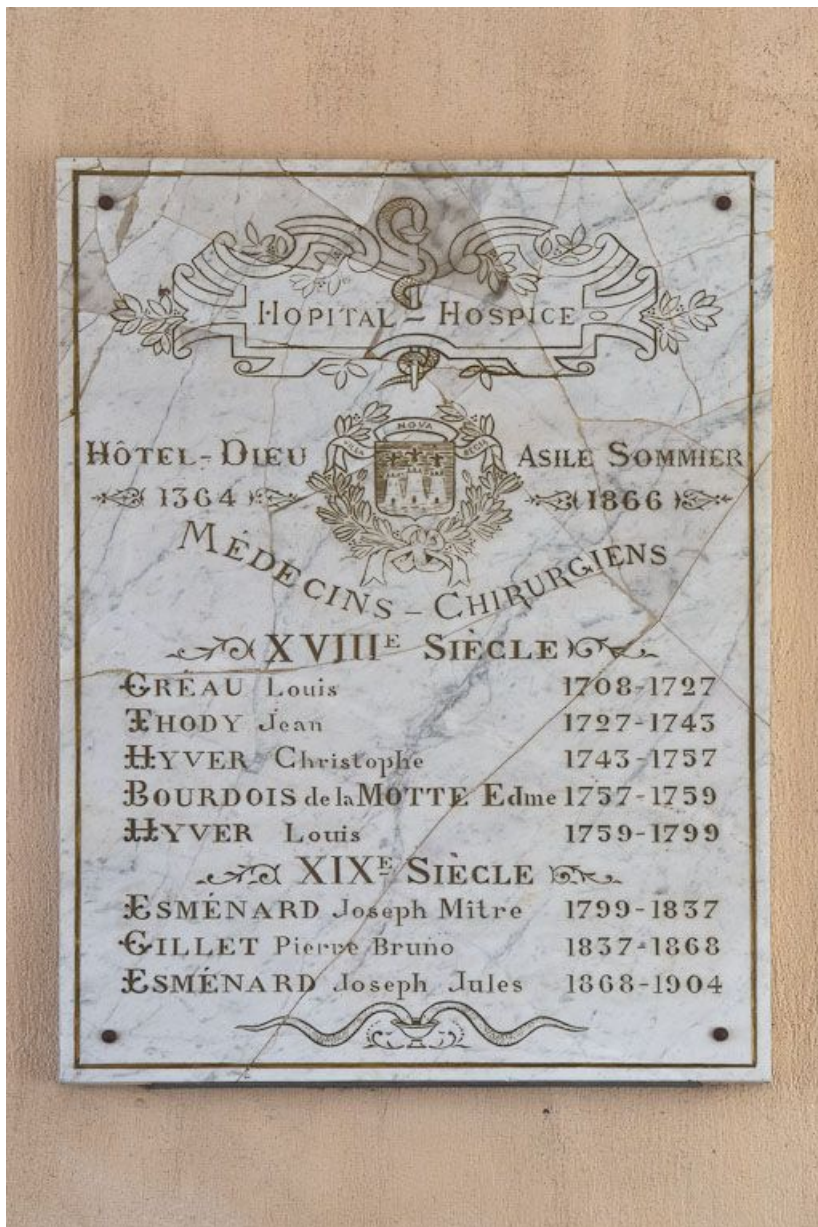 HOPITAL - HOSPICE
NOVA
VILLA REGIA
HÔTEL-DIEU
1364
ASILE SOMMIER
1866
MÉDECINS - CHIRURGIENS
XVIIIE SIÈCLE
GRÉAU Louis 1708-1727
THODY Jean 1727-1743
HYVER Christophe 1743-1757
BOURDOIS de la MOTTE Edme 1757-1759
HYVER Louis 1759-1799
XIXE SIÈCLE
ESMÉNARD Joseph Mître 1799-1837
GILLET Pierre Bruno 1837-1868
ESMÉNARD Joseph Jules 1868-1904